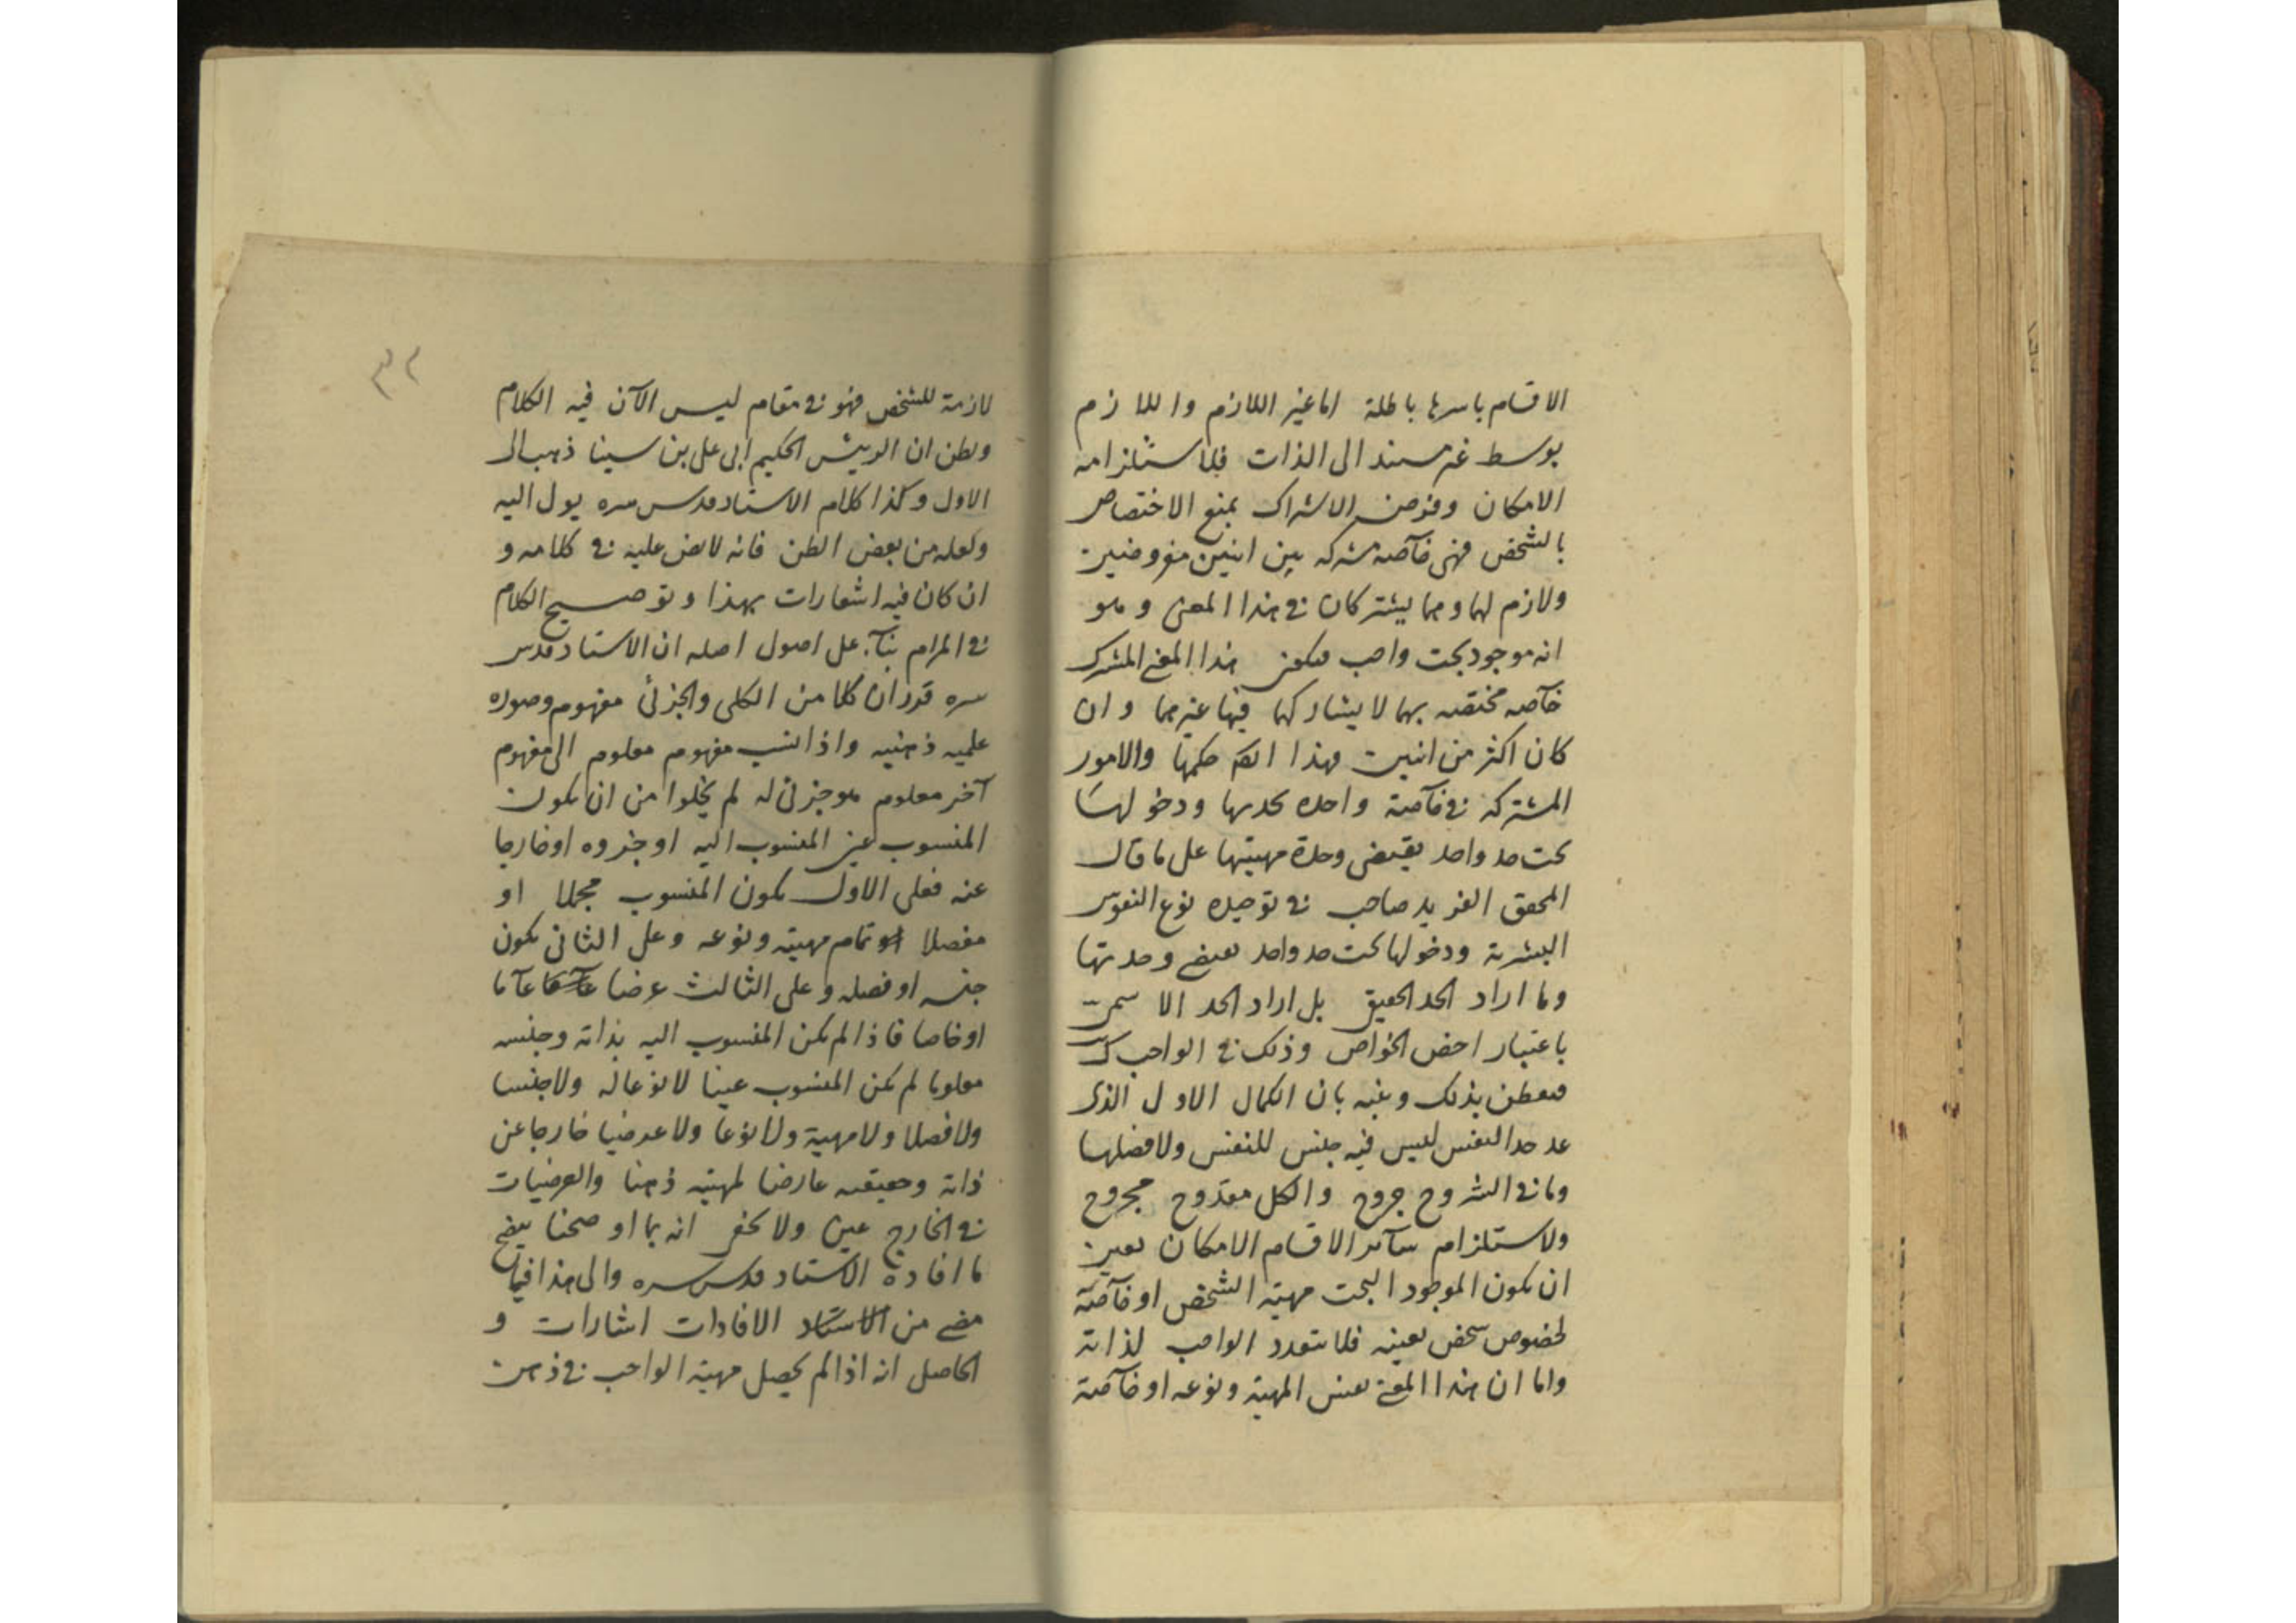 الاقسام باسرها باطلة اما غير اللازم واللازم
بوسط غير مستند الى الذات فلاستلزامه
الامكان وفرض الاشتراك يمنع الاختصاص
بالشخص فهى خآصة مشتركه بين اثنين مفروضين
ولازم لهما وهما يشتركان فى هذا المعنى وهو
انه موجود بحت واجب فيكون هذا المعنى المشترك
خآصه مختصه بهما لا يشاركهما فيها غيرهما وان
كان اكثر من اثنين فهذا ايضا حكمها والامور
المشتركه فى خآصة واحده بحدها ودخولها
تحت حد واحد يقتضى وحدة مهيتها على ما قال
المحقق الفريد صاحب فى توحيده نوع النفوس
البشرية ودخولها تحت حد واحد يقتضى وحدتها
وما اراد الحد الحقيقى بل اراد الحد الاسمى
باعتبار اخص الخواص وذلك فى الواجب
فتفطن بذلك وتنبه بان الكمال الاول الذى
عد حد النفس ليس فيه جنس للنفس ولا فصلها
وما فى الشروح جروح والكل مقدوح مجروح
ولاستلزام سآئر الاقسام الامكان تعين
ان يكون الموجود البحت مهية الشخص او خآصة
لخصوص شخص بعينه فلا يتعدد الواجب لذاته
واما ان هذا المعنى نفس المهية ونوعه او خآصة
٣٢
لازمة للشخص فهو فى مقام ليس الآن فيه الكلام
ويظن ان الرئيس الحكيم ابى على بن سينا ذهب الى
الاول وكذا كلام الاستاد قدس سره يول اليه
ولعله من بعض الظن فانه لا نص عليه فى كلامه و
ان كان فيه اشعارات بهذا وتوضيح الكلام
فى المرام بنآء على اصول اصله ان الاستاد قدس
سره قدر ان كلا من الكلى والجزئى مفهوم وصوره
علميه ذهنيه واذا نسب مفهوم معلوم الى مفهوم
آخر معلوم هو جزئى له لم يخلوا من ان يكون
المنسوب عين المنسوب اليه او جزوه او خارجا
عنه فعلى الاول يكون المنسوب مجملا او
مفصلا تمام مهيته ونوعه وعلى الثانى يكون
جنسه او فصله وعلى الثالث عرضا عآما
او خاصا فاذا لم يكن المنسوب اليه بذاته وجنسه
معلوما لم يكن المنسوب عينا لا نوعا له ولا جنسا
ولا فصلا ولا مهية ولا نوعا ولا عرضيا خارجا عن
ذاته وحقيقته عارضا لمهيته ذهنا والعرضيات
فى الخارج عين ولا يخفى انه بما اوضحنا يتضح
ما افاده الاستاد قدس سره والى هذا فيما
مضى من الافادات اشارات و
الحاصل انه اذا لم يحصل مهية الواجب فى ذهن